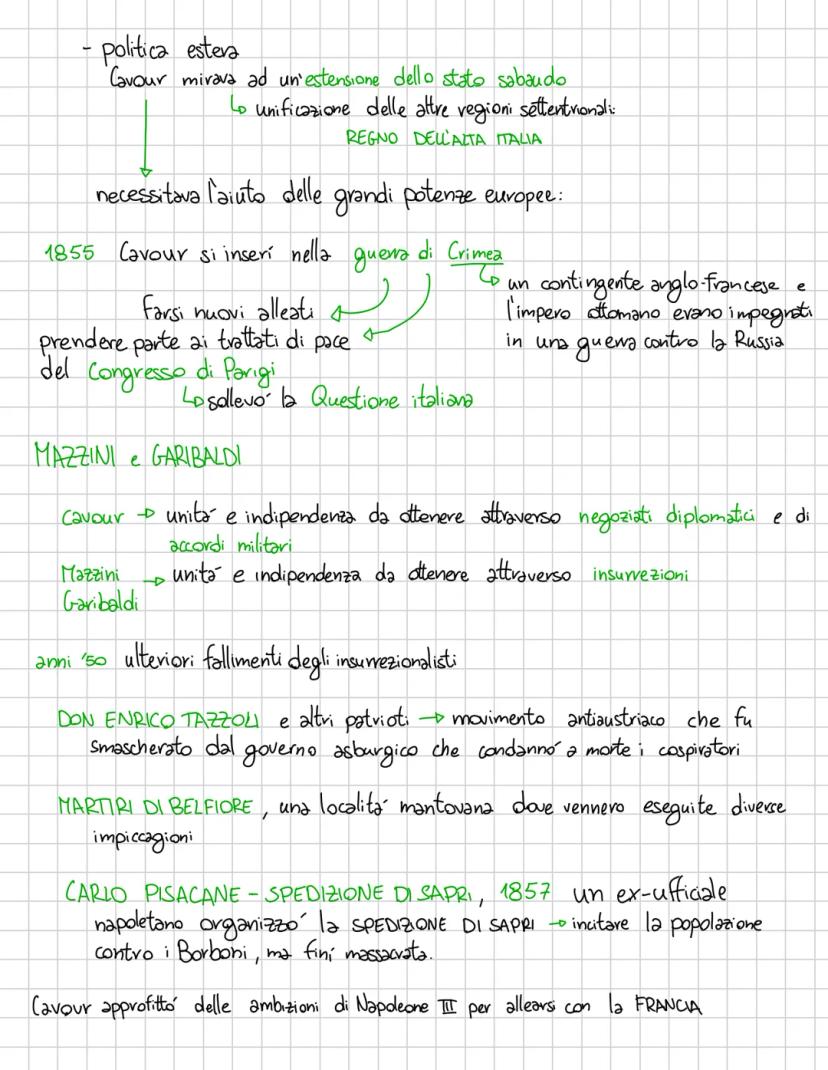 - politica estera
Cavour mirava ad un'estensione dello stato sabaudo
↳ unificazione delle altre regioni settentrionali:
REGNO DELL'ALTA ITALIA
necessitava l'aiuto delle grandi potenze europee:
1855 Cavour si inserí nella guerra di Crimea
↳ un contingente anglo-francese e
l'impero ottomano erano impegnati
in una guerra contro la Russia
farsi nuovi alleati
prendere parte ai trattati di pace
del Congresso di Parigi
↳ sollevó la Questione italiana
MAZZINI e GARIBALDI
Cavour → unitá e indipendenza da ottenere attraverso negoziati diplomatici e di
accordi militari
Mazzini → unitá e indipendenza da ottenere attraverso insurrezioni
Garibaldi
anni '50 ulteriori fallimenti degli insurrezionalisti
DON ENRICO TAZZOLI e altri patrioti → movimento antiaustriaco che fu
smascherato dal governo asburgico che condannó a morte i cospiratori
MARTIRI DI BELFIORE, una localitá mantovana dove vennero eseguite diverse
impiccagioni
CARLO PISACANE - SPEDIZIONE DI SAPRI, 1857 un ex-ufficiale
napoletano organizzó la SPEDIZIONE DI SAPRI → incitare la popolazione
contro i Borboni, ma finí massacrata.
Cavour approfittó delle ambizioni di Napoleone III per allearsi con la FRANCIA